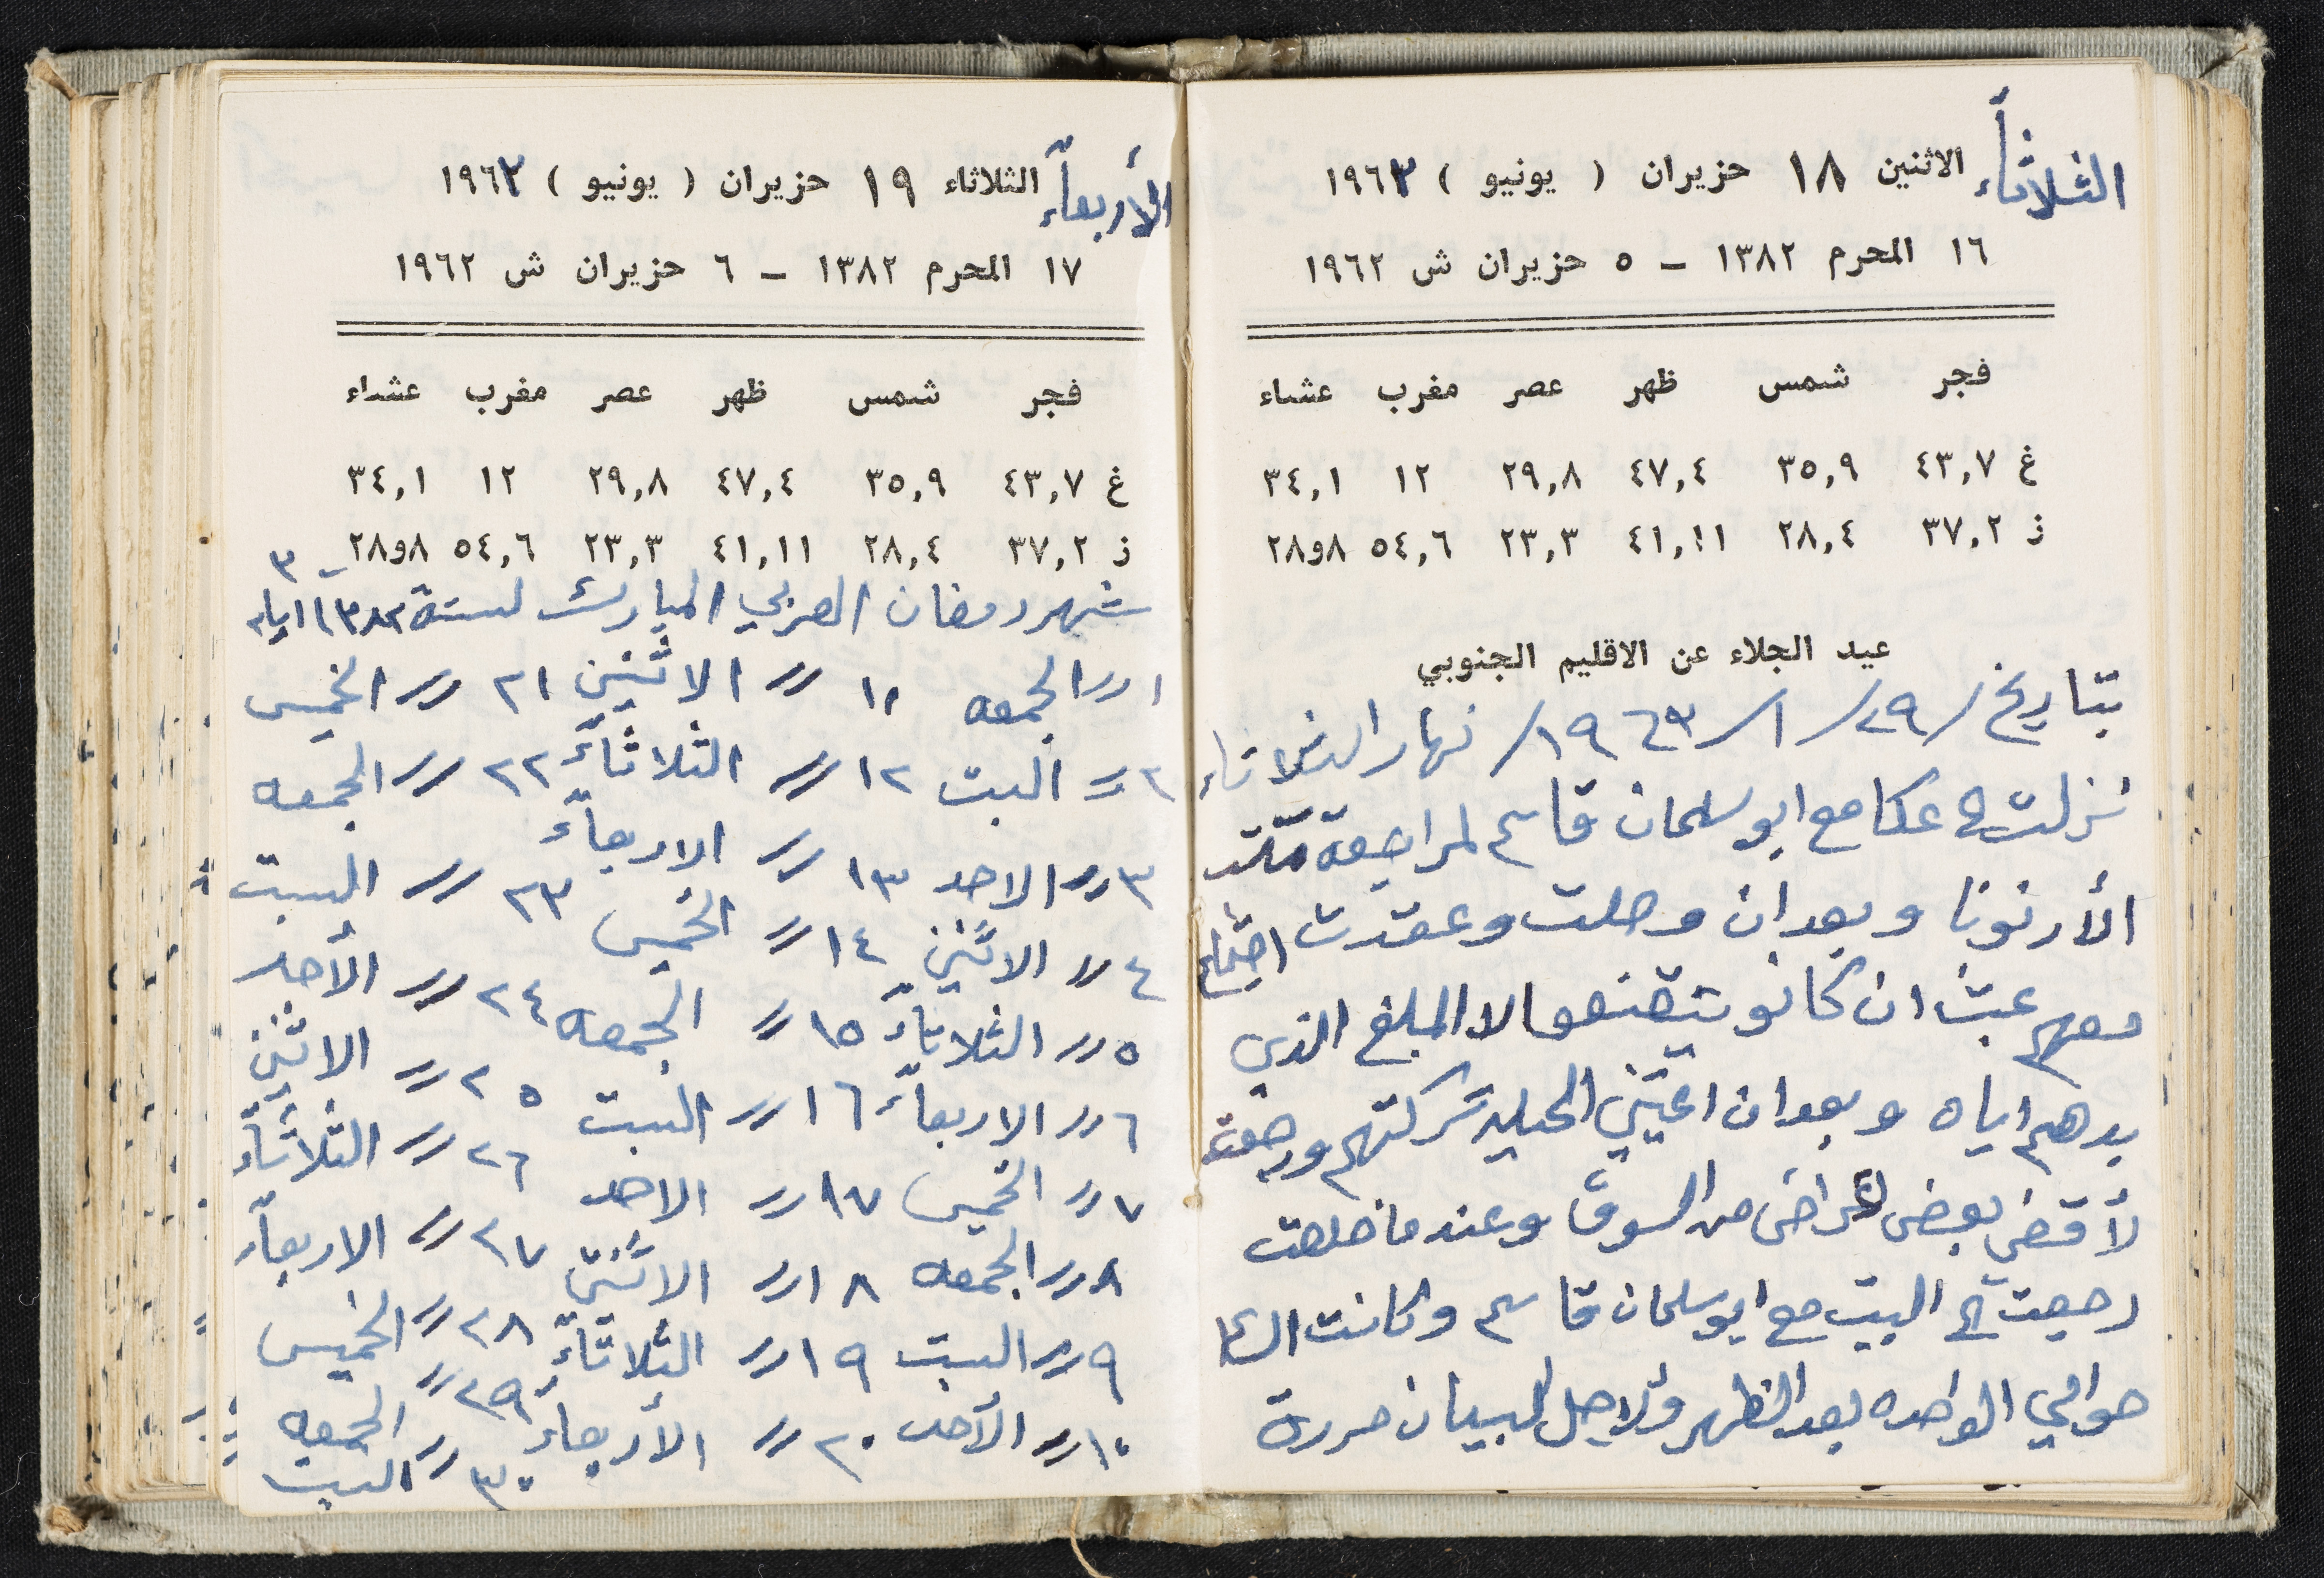 الثلاثاء الاثنين ١٨ حزيران ( يونيو ) ١٩٦٣
١٦ المحرم ١٣٨٢ – ٥ حزيران ش ١٩٦٢
فجر شمس ظهر عصر مغرب عشاء
غ ٤٣,٧ ٣٥,٩ ٤٧,٤ ٢٩,٨ ١٢ ٣٤,١
ز ٣٧,٢ ٢٨,٤ ٤١,١١ ٢٣,٣ ٥٤,٦ ٨و٢٨
عيد الجلاء عن الاقليم الجنوبي
بتاريخ /٢٩/١/١٩٦٣/ نهار الثلاثاء
نزلت الى عكا مع ابو سلمان قاسم لمراجعة
الأرنونا وبعد ان وصلت وعقدت اجتماع
معهم عبث ان كانو يقتنعو الا المبلغ الذي
بدهم اياه وبعد ان اعيتني الحيله تركتهم ورجعت
لأقضي بعض اغراض من السوق وعندما خلصت
رجعت الى البيت مع ابو سلمان قاسم وكانت الساعه
حوالي الواحده بعد الظهر ولاجل البيان حررة
الأربعاء الثلاثاء ١٩ حزيران ( يونيو ) ١٩٦٣
١٧ المحرم ١٣٨٢ – ٦ حزيران ش ١٩٦٢
فجر شمس ظهر عصر مغرب عشاء
غ ٤٣,٧ ٣٥,٩ ٤٧,٤ ٢٩,٨ ١٢ ٣٤,١
ز ٣٧,٢ ٢٨,٤ ٤١,١١ ٢٣,٣ ٥٤,٦ ٨و٢٨
٣
شهر رمضان العربي المبارك لسنة ١٣٨٢ ايام
١ 〃 الجمعه ١١ 〃 الاثنين ٢١ 〃 الخميس
٢ 〃 السبت ١٢ 〃 الثلاثاء ٢٢ 〃 الجمعه
٣ 〃 الاحد ١٣ 〃 الاربعاء ٢٣ 〃 السبت
٤ 〃 الاثنين ١٤ 〃 الخميس ٢٤ 〃 الأحد
٥ 〃 الثلاثاء ١٥ 〃 الجمعه ٢٥ 〃 الاثنين
٦ 〃 الاربعاء ١٦ 〃 السبت ٢٦ 〃 الثلاثاء
٧ 〃 الخميس ١٧ 〃 الاحد ٢٧ 〃 الاربعاء
٨ 〃 الجمعه ١٨ 〃 الاثنين ٢٨ 〃 الخميس
٩ 〃 السبت ١٩ 〃 الثلاثاء ٢٩ 〃 الجمعه
١٠ 〃 الأحد ٢٠ 〃 الأربعاء ٣٠ 〃 السبت